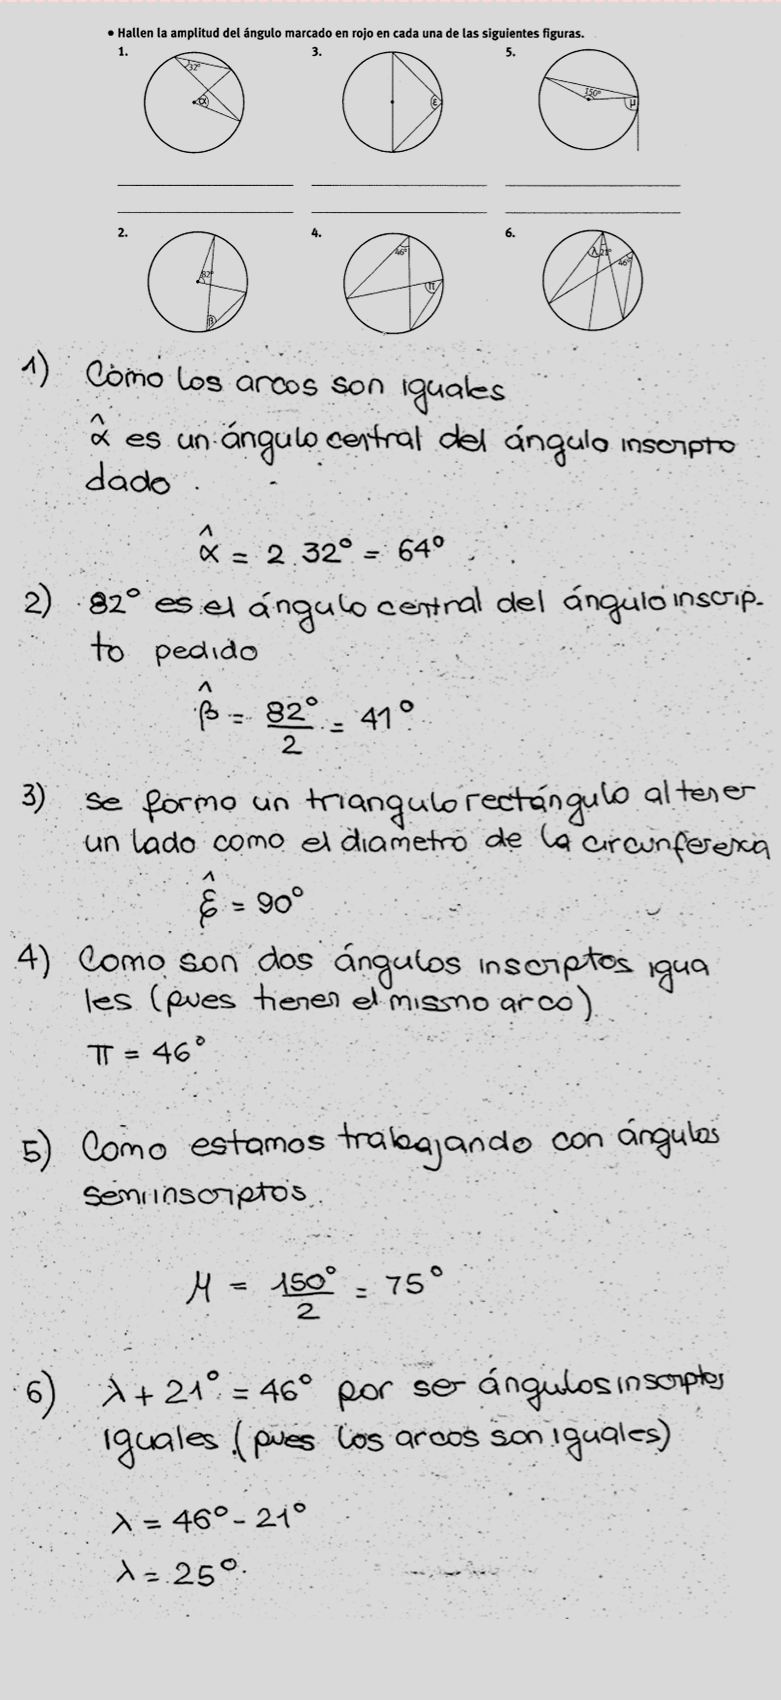 • Hallen la amplitud del ángulo marcado en rojo en cada una de las siguientes figuras.
1. 3. 5.
32° α ε 150° μ
2. 4. 6.
82° β 46° π λ 21° 46°
1) Como los arcos son iguales
α̂ es un ángulo central del ángulo inscripto
dado.
α̂ = 2.32° = 64°
2) 82° es el ángulo central del ángulo inscrip-
to pedido
β̂ = 82°/2 = 41°
3) se formo un triangulo rectángulo al tener
un lado como el diametro de la circunferencia
ε̂ = 90°
4) Como son dos ángulos inscriptos igua
les (pues tienen el mismo arco)
π = 46°
5) Como estamos trabajando con ángulos
semiinscriptos.
μ = 150°/2 = 75°
6) λ + 21° = 46° por ser ángulos inscriptos
iguales (pues los arcos son iguales)
λ = 46° - 21°
λ = 25°